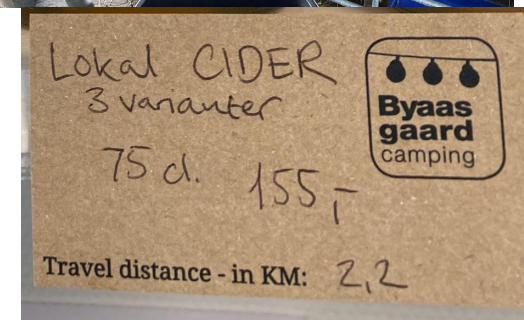 Lokal CIDER
3 varianter
75 cl.
155,-
Byaas
gaard
camping
Travel distance - in KM: 2,2